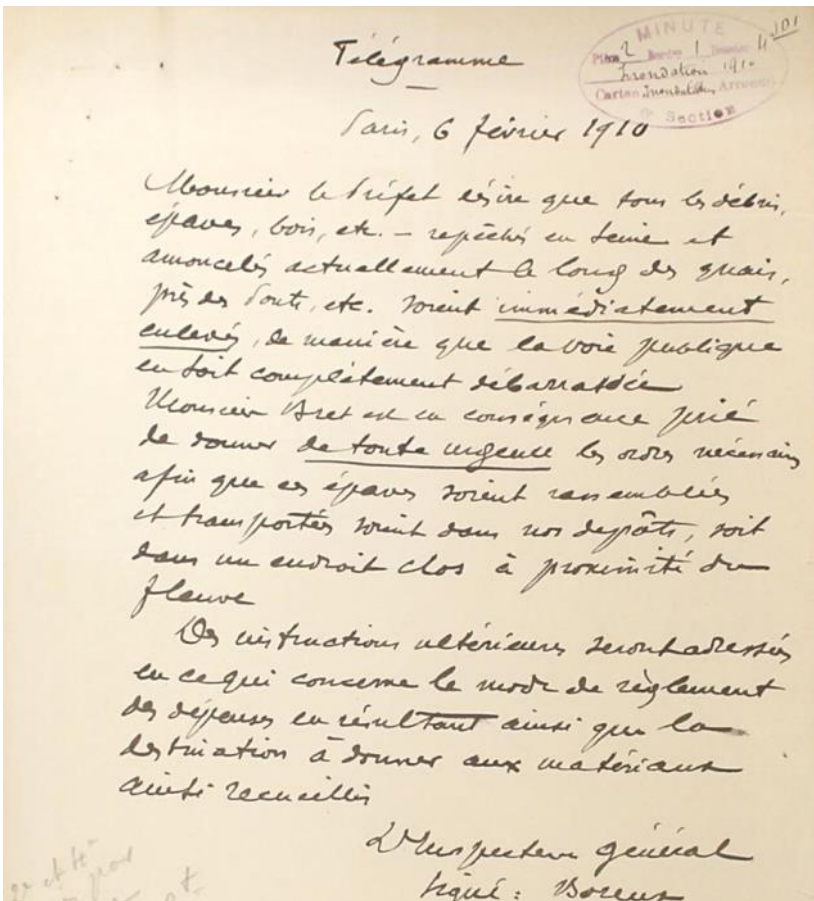 Télégramme
MINUTE
Pièce 2 Bordereau 1 Dossier 4
101
Inondation 1910
Carton Inondation Arrond
Section
Paris, 6 février 1910
Monsieur le Préfet désire que tous les débris,
épaves, bois, etc. — repêchés en Seine et
amoncelés actuellement le long des quais,
près des Ponts, etc. soient immédiatement
enlevés, de manière que la voie publique
en soit complètement débarrassée
Monsieur Bret est en conséquence prié
de donner de toute urgence les ordres nécessaires
afin que ces épaves soient rassemblées
et transportées soient dans nos depôts, soit
dans un endroit clos à proximité du
fleuve
Des instructions ultérieures seront adressées
en ce qui concerne le mode de règlement
des dépenses en résultant ainsi que la
destination à donner aux matériaux
ainsi recueillis
L'Inspecteur général
signé : Boreux